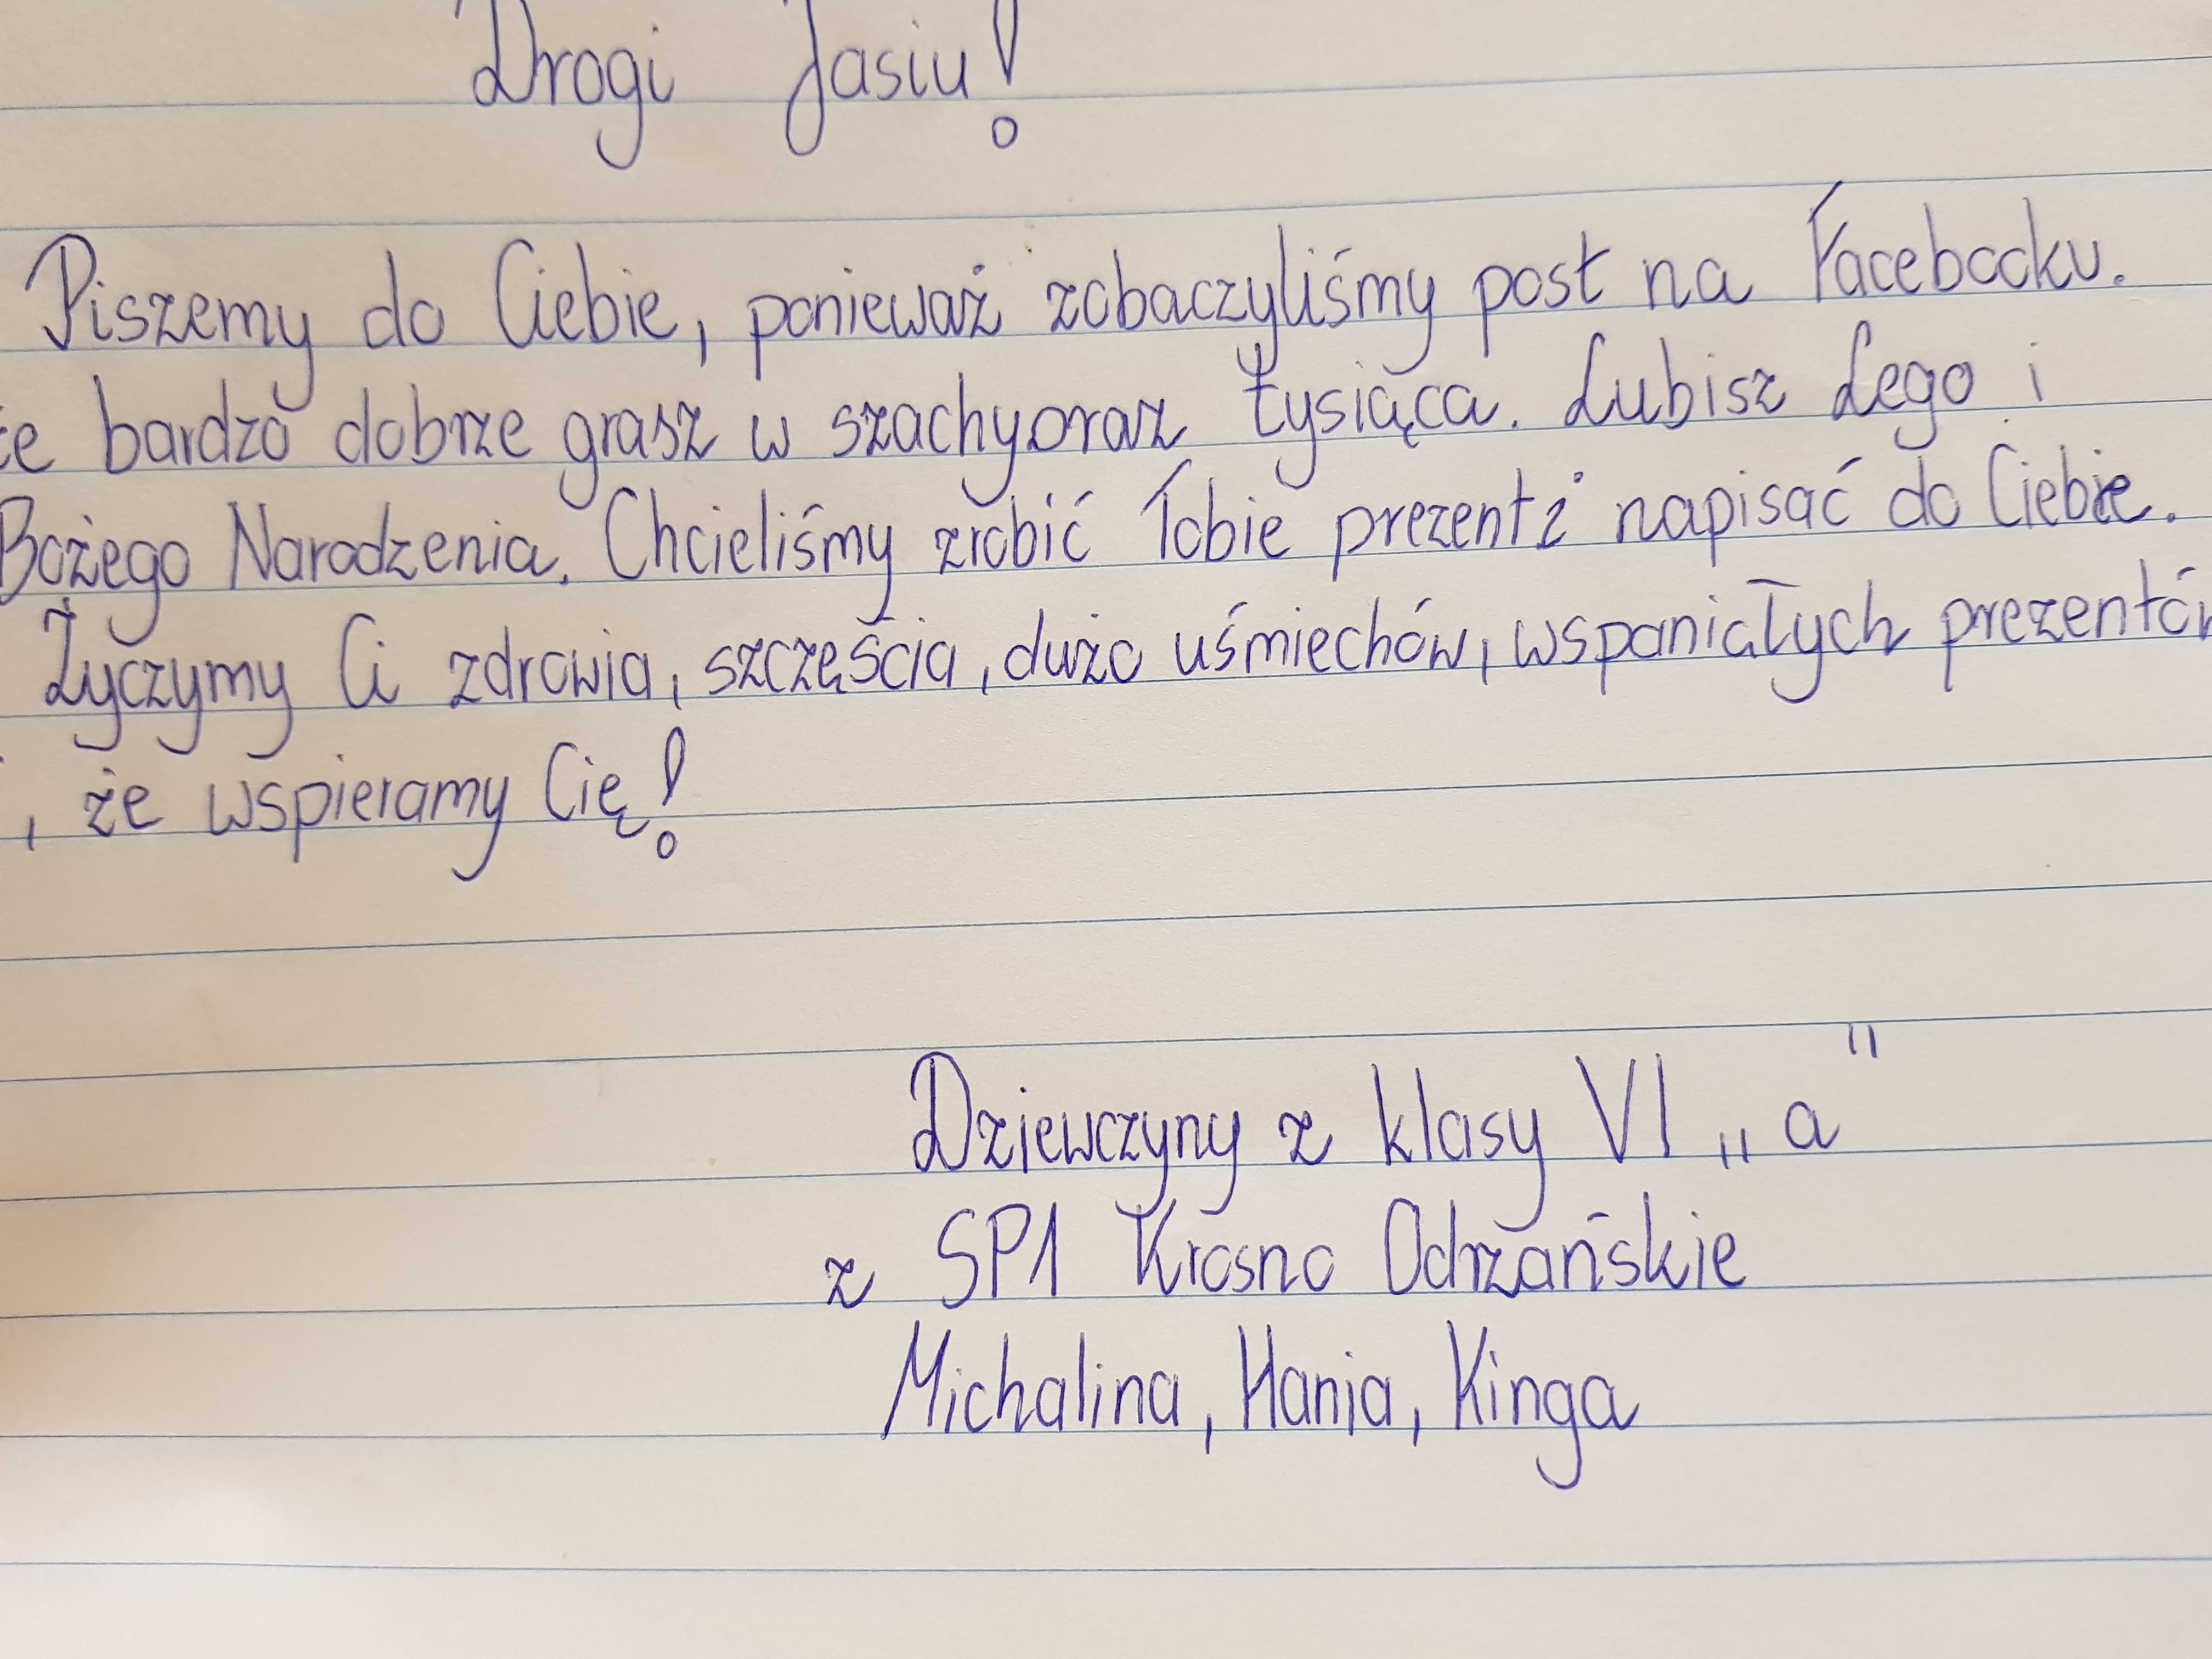 Drogi Jasiu!
Piszemy do Ciebie, ponieważ zobaczyliśmy post na Facebooku.
bardzo dobrze grasz w szachy oraz tysiąca. Lubisz Lego i
Bożego Narodzenia. Chcieliśmy zrobić Tobie prezent i napisać do Ciebie.
Życzymy Ci zdrowia, szczęścia, dużo uśmiechów, wspaniałych prezentów
, że wspieramy Cię!
Dziewczyny z klasy VI „a”
z SP1 Krosno Odrzańskie
Michalina, Hania, Kinga